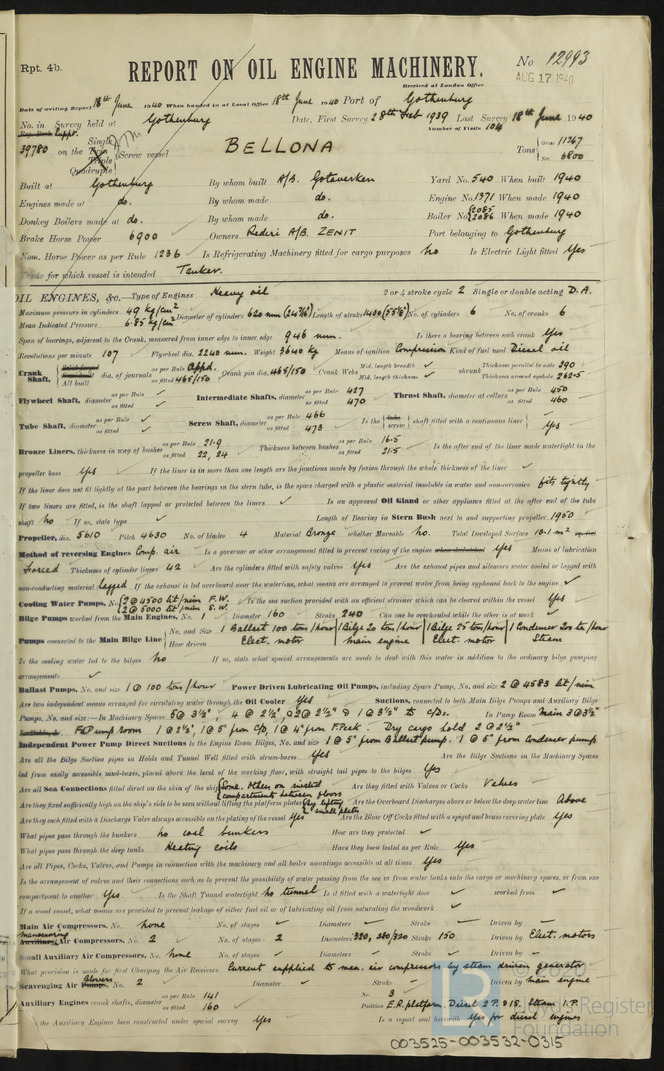 Rpt. 4b.
REPORT ON OIL ENGINE MACHINERY.
No 12993
Received at London Office
AUG 17 1940
Date of writing Report 18th June 1940 When handed in at Local Office 18th June 1940 Port of Gothenburg
No. in Survey held at Gothenburg Date, First Survey 28th Feb 1939 Last Survey 18th June 1940
Number of Visits 104
39780 on the Single Twin Triple Quadruple Screw vessel BELLONA Tons Gross 11267 Net 6800
Built at Gothenburg By whom built A/B. Gotaverken Yard No. 540 When built 1940
Engines made at do. By whom made do. Engine No. 1371 When made 1940
Donkey Boilers made at do. By whom made do. Boiler No. 2085 2086 When made 1940
Brake Horse Power 6900 Owners Rederi A/B. ZENIT Port belonging to Gothenburg
Nom. Horse Power as per Rule 1236 Is Refrigerating Machinery fitted for cargo purposes No Is Electric Light fitted Yes
Trade for which vessel is intended Tanker.
OIL ENGINES, &c.—Type of Engines Heavy oil 2 or 4 stroke cycle 2 Single or double acting D.A.
Maximum pressure in cylinders 49 kg/cm² Diameter of cylinders 620 mm Length of stroke 1400 No. of cylinders 6 No. of cranks 6
Mean Indicated Pressure 6.85 kg/cm²
Span of bearings, adjacent to the Crank, measured from inner edge to inner edge 946 mm. Is there a bearing between each crank Yes
Revolutions per minute 107 Flywheel dia. 2240 mm. Weight 3640 kg Means of ignition Compression Kind of fuel used Diesel oil
Crank Shaft, Solid forged Semi built All built dia. of journals as per Rule Appd. as fitted 465/150 Crank pin dia. 465/150 Crank Webs Mid. length breadth Mid. length thickness shrunk Thickness parallel to axis 290 Thickness around eyehole 262.5
Flywheel Shaft, diameter as per Rule as fitted Intermediate Shafts, diameter as per Rule 427 as fitted 470 Thrust Shaft, diameter at collars as per Rule 450 as fitted 460
Tube Shaft, diameter as per Rule as fitted Screw Shaft, diameter as per Rule 466 as fitted 473 Is the tube screw shaft fitted with a continuous liner Yes
Bronze Liners, thickness in way of bushes as per Rule 21.9 as fitted 22, 24 Thickness between bushes as per Rule 16.5 as fitted 21.5 Is the after end of the liner made watertight in the
propeller boss Yes If the liner is in more than one length are the junctions made by fusion through the whole thickness of the liner
If the liner does not fit tightly at the part between the bearings in the stern tube, is the space charged with a plastic material insoluble in water and non-corrosive fits tightly
If two liners are fitted, is the shaft lapped or protected between the liners Is an approved Oil Gland or other appliance fitted at the after end of the tube
shaft No If so, state type Length of Bearing in Stern Bush next to and supporting propeller 1950
Propeller, dia. 5610 Pitch 4630 No. of blades 4 Material Bronze whether Moveable No. Total Developed Surface 10.1 m²
Method of reversing Engines Comp. air Is a governor or other arrangement fitted to prevent racing of the engine when declutched Yes Means of lubrication
Forced Thickness of cylinder liners 42 Are the cylinders fitted with safety valves Yes Are the exhaust pipes and silencers water cooled or lagged with
non-conducting material Lagged If the exhaust is led overboard near the waterline, what means are arranged to prevent water from being syphoned back to the engine
Cooling Water Pumps, No. 2 @ 4500 lit/min F.W. 2 @ 5000 lit/min S.W. Is the sea suction provided with an efficient strainer which can be cleared within the vessel Yes
Bilge Pumps worked from the Main Engines, No. 1 Diameter 160 Stroke 240 Can one be overhauled while the other is at work
Pumps connected to the Main Bilge Line No. and Size 1 Ballast 100 ton/hour 1 Bilge 20 ton/hour 1 Bilge 25 ton/hour 1 Condenser 200 ton/hour
How driven Elect. motor main engine Elect. motor Steam
Is the cooling water led to the bilges No If so, state what special arrangements are made to deal with this water in addition to the ordinary bilge pumping
arrangements
Ballast Pumps, No. and size 1 @ 100 ton/hour Power Driven Lubricating Oil Pumps, including Spare Pump, No. and size 2 @ 4583 lit/min
Are two independent means arranged for circulating water through the Oil Cooler Yes Suctions, connected to both Main Bilge Pumps and Auxiliary Bilge
Pumps, No. and size:—In Machinery Spaces 5 @ 3½", 4 @ 2½", 2 @ 2½" & 1 @ 3½" to c/ds. In Pump Room Main 3 @ 3½"
F'd pump room 1 @ 2½", 1 @ 5" from C/D, 1 @ 4" from F. Peak. Dry cargo hold 2 @ 2½"
Independent Power Pump Direct Suctions to the Engine Room Bilges, No. and size 1 @ 5" from Ballast pump. 1 @ 5" from Condenser pump
Are all the Bilge Suction pipes in Holds and Tunnel Well fitted with strum-boxes Yes Are the Bilge Suctions in the Machinery Spaces
led from easily accessible mud-boxes, placed above the level of the working floor, with straight tail pipes to the bilges Yes
Are all Sea Connections fitted direct on the skin of the ship Some. Others on riveted compartments between floors Are they fitted with Valves or Cocks Valves
Are they fixed sufficiently high on the ship's side to be seen without lifting the platform plates By lifting small plates Are the Overboard Discharges above or below the deep water line Above
Are they each fitted with a Discharge Valve always accessible on the plating of the vessel Yes Are the Blow Off Cocks fitted with a spigot and brass covering plate Yes
What pipes pass through the bunkers No coal bunkers How are they protected
What pipes pass through the deep tanks Heating coils Have they been tested as per Rule Yes
Are all Pipes, Cocks, Valves, and Pumps in connection with the machinery and all boiler mountings accessible at all times Yes
Is the arrangement of valves and their connections such as to prevent the possibility of water passing from the sea or from water tanks into the cargo or machinery spaces, or from one
compartment to another Yes Is the Shaft Tunnel watertight No tunnel Is it fitted with a watertight door worked from
If a wood vessel, what means are provided to prevent leakage of either fuel oil or of lubricating oil from saturating the woodwork
Main Air Compressors, No. None No. of stages Diameters Stroke Driven by
manoeuvring Auxiliary Air Compressors, No. 2 No. of stages 2 Diameters 320, 280/320 Stroke 150 Driven by Elect. motors
Small Auxiliary Air Compressors, No. None No. of stages Diameters Stroke Driven by
What provision is made for first Charging the Air Receivers Current supplied to man. air compressors by steam driven generator
Scavenging Air Pumps, Blowers No. 2 Diameter Stroke Driven by main engine
Auxiliary Engines crank shafts, diameter as per Rule 141 as fitted 160 No. 3 Position E.R. platform. Diesel 2 P. & 1 S. Steam 1.P.
the Auxiliary Engines been constructed under special survey Yes Is a report sent herewith Yes for diesel engines
© 2020
LR
Lloyd's Register
Foundation
003525-003532-0315